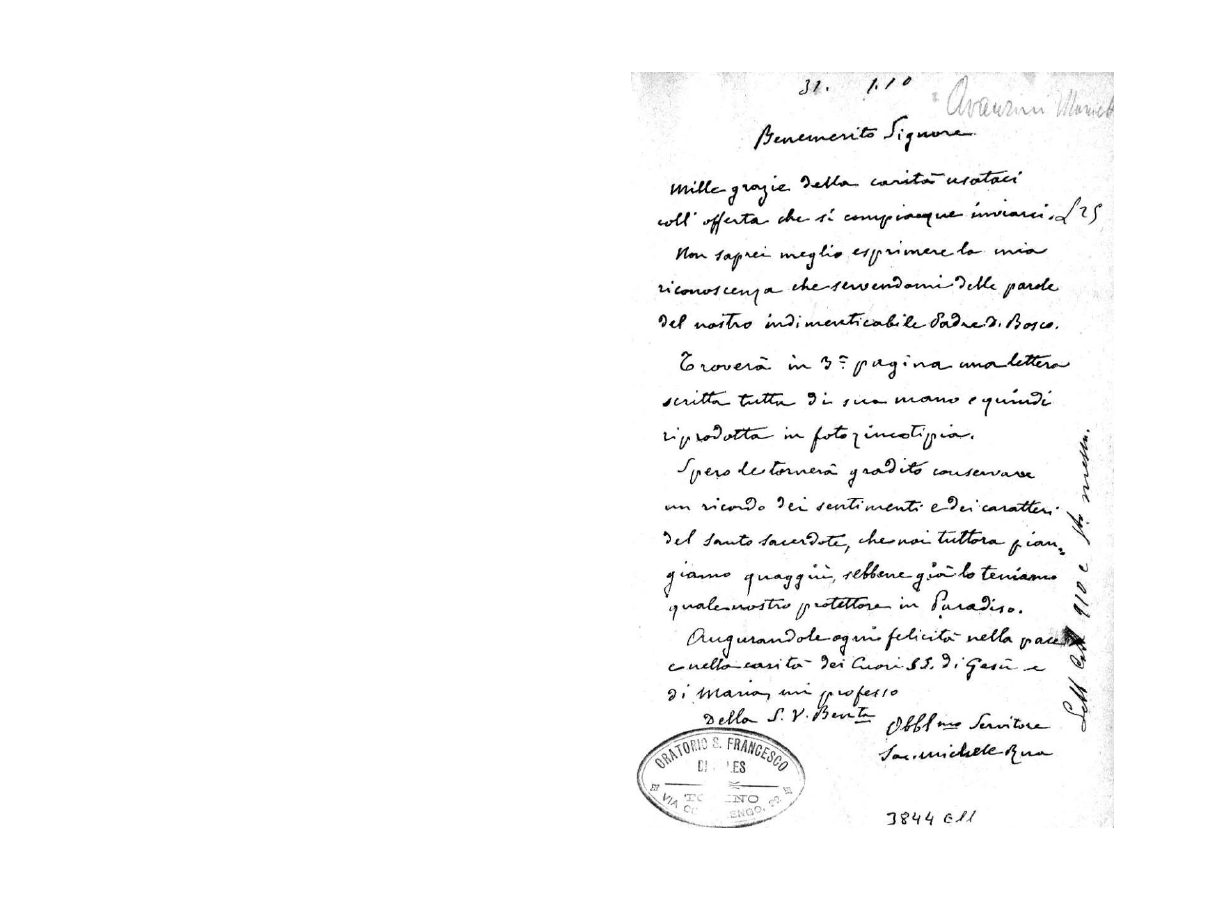 31. 1.10
Avanzini
Benemerito Signore
Mille grazie della carità usataci
coll' offerta che si compiacque inviarci. £ 25
Non saprei meglio esprimere la mia
riconoscenza che servendomi delle parole
del nostro indimenticabile Padre D. Bosco.
Troverà in 3ª pagina una lettera
scritta tutta di sua mano e quindi
riprodotta in fotozincotipia.
Spero le tornerà gradito conservare
un ricordo dei sentimenti e dei caratteri
del santo sacerdote, che noi tuttora pian-
giamo quaggiù, sebbene già lo teniamo
quale nostro protettore in Paradiso.
Augurandole ogni felicità nella pace
e nella carità dei Cuori SS. di Gesù e
di Maria, mi professo
Della S. V. Benta
Obblmo Servitore
Sac. Michele Rua
ORATORIO S. FRANCESCO
TORINO
VIA
3844